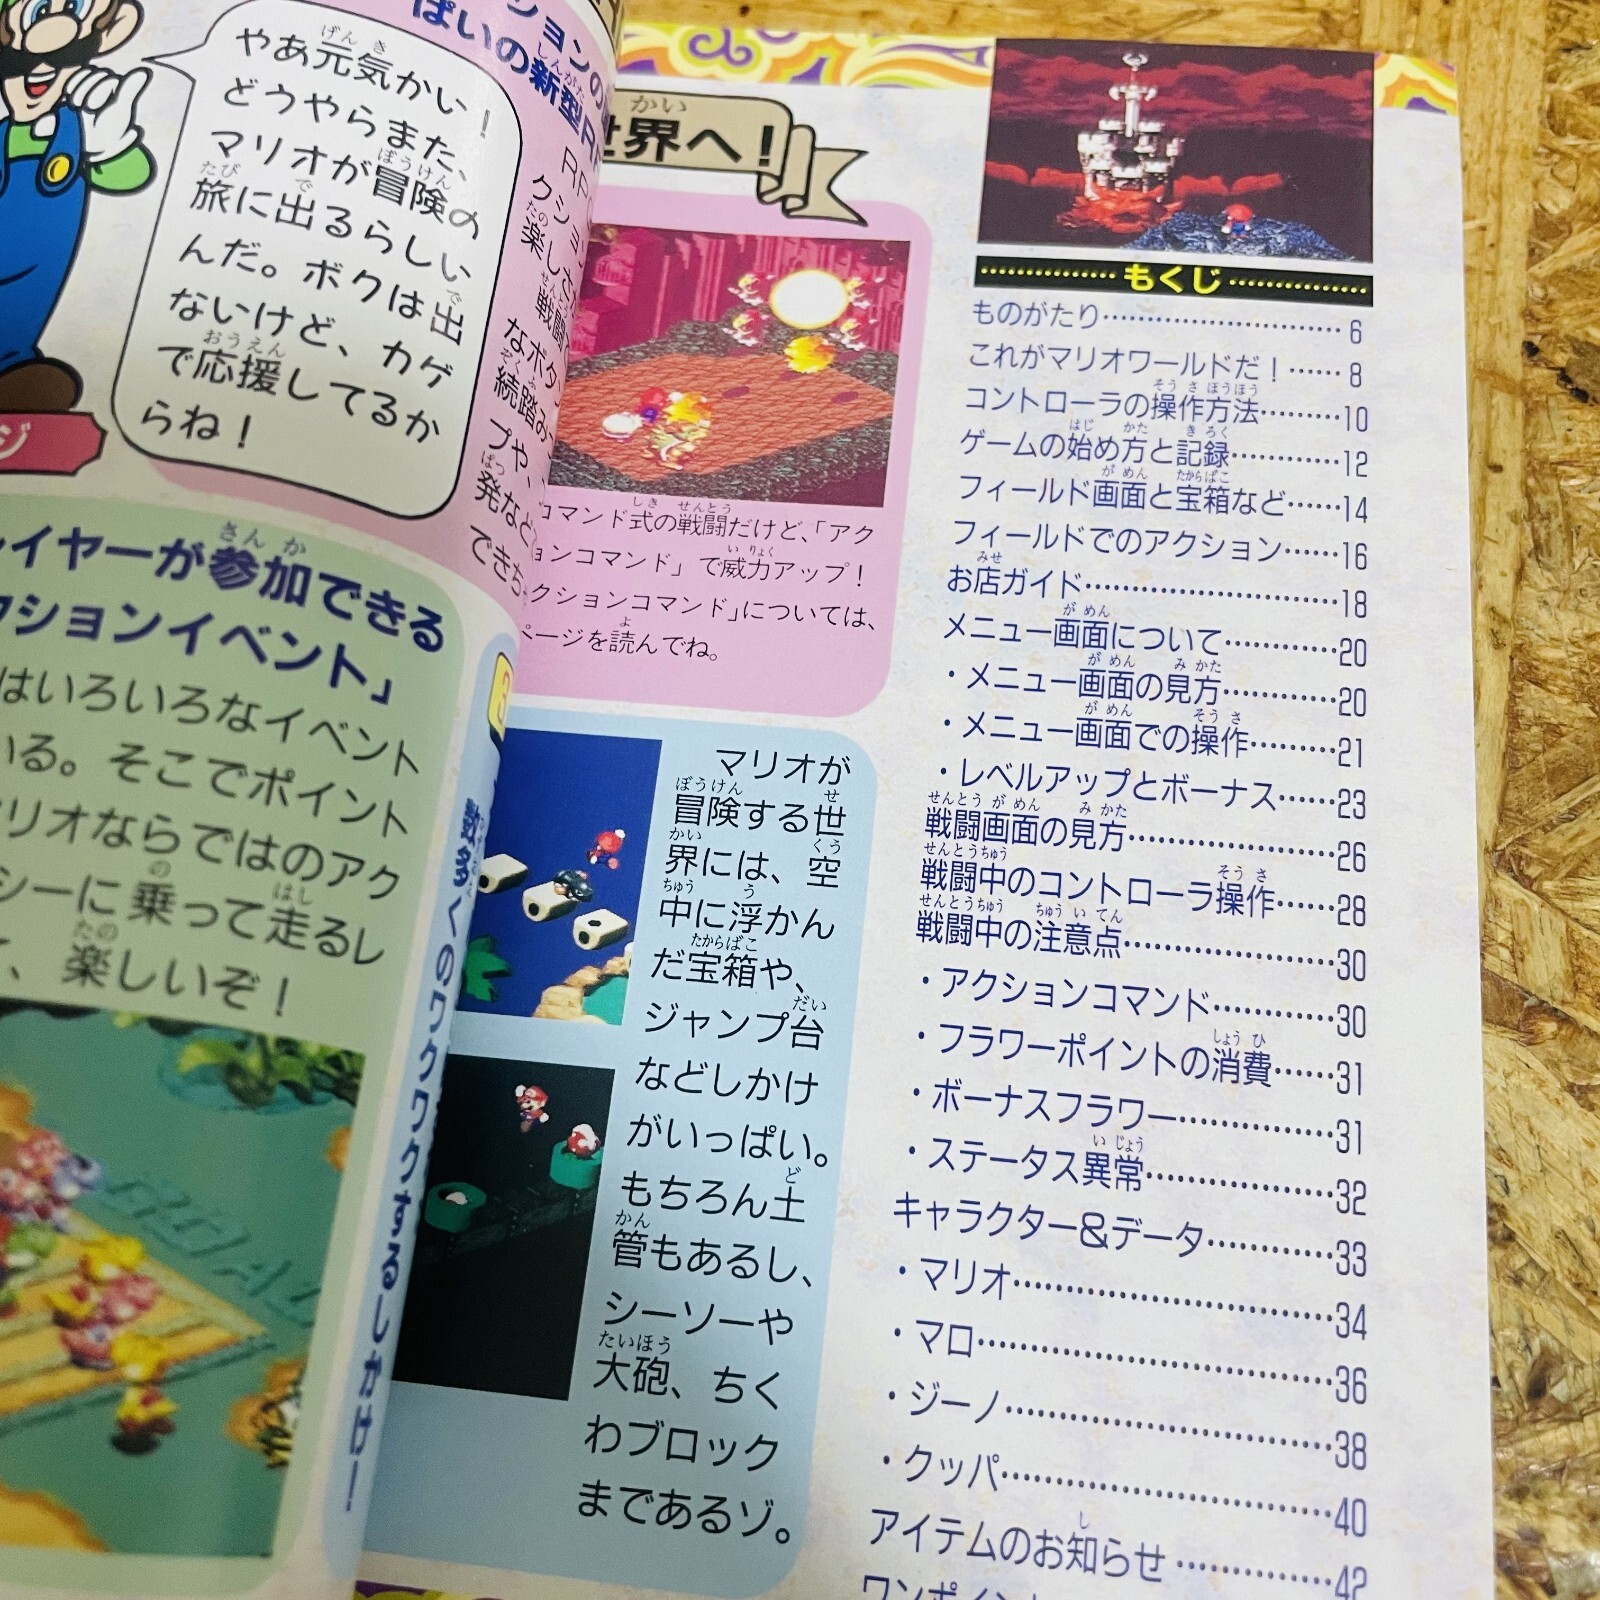 やあ元気かい！
どうやらまた、
マリオが冒険の
旅に出るらしい
んだ。ボクは出
ないけど、カゲ
で応援してるか
らね！
ジ
イヤーが参加できる
クションイベント」
はいろいろなイベント
いる。そこでポイント
リオならではのアク
シーに乗って走るレ
、楽しいぞ！
ションの
ぱいの新型R
RP
クショ
楽し
戦闘
なボタン
続踏み
プや、
発など
できち
3
数多くのワクワクするしかけ！
世界へ！
コマンド式の戦闘だけど、「アク
ションコマンド」で威力アップ！
クションコマンド」については、
ページを読んでね。
マリオが
冒険する世
界には、空
中に浮かん
だ宝箱や、
ジャンプ台
などしかけ
がいっぱい。
もちろん土
管もあるし、
シーソーや
大砲、ちく
わブロック
まであるゾ。
もくじ
ものがたり……6
これがマリオワールドだ！……8
コントローラの操作方法……10
ゲームの始め方と記録……12
フィールド画面と宝箱など……14
フィールドでのアクション……16
お店ガイド……18
メニュー画面について……20
・メニュー画面の見方……20
・メニュー画面での操作……21
・レベルアップとボーナス……23
戦闘画面の見方……26
戦闘中のコントローラ操作……28
戦闘中の注意点……30
・アクションコマンド……30
・フラワーポイントの消費……31
・ボーナスフラワー……31
・ステータス異常……32
キャラクター＆データ……33
・マリオ……34
・マロ……36
・ジーノ……38
・クッパ……40
アイテムのお知らせ……42
ワンポイント